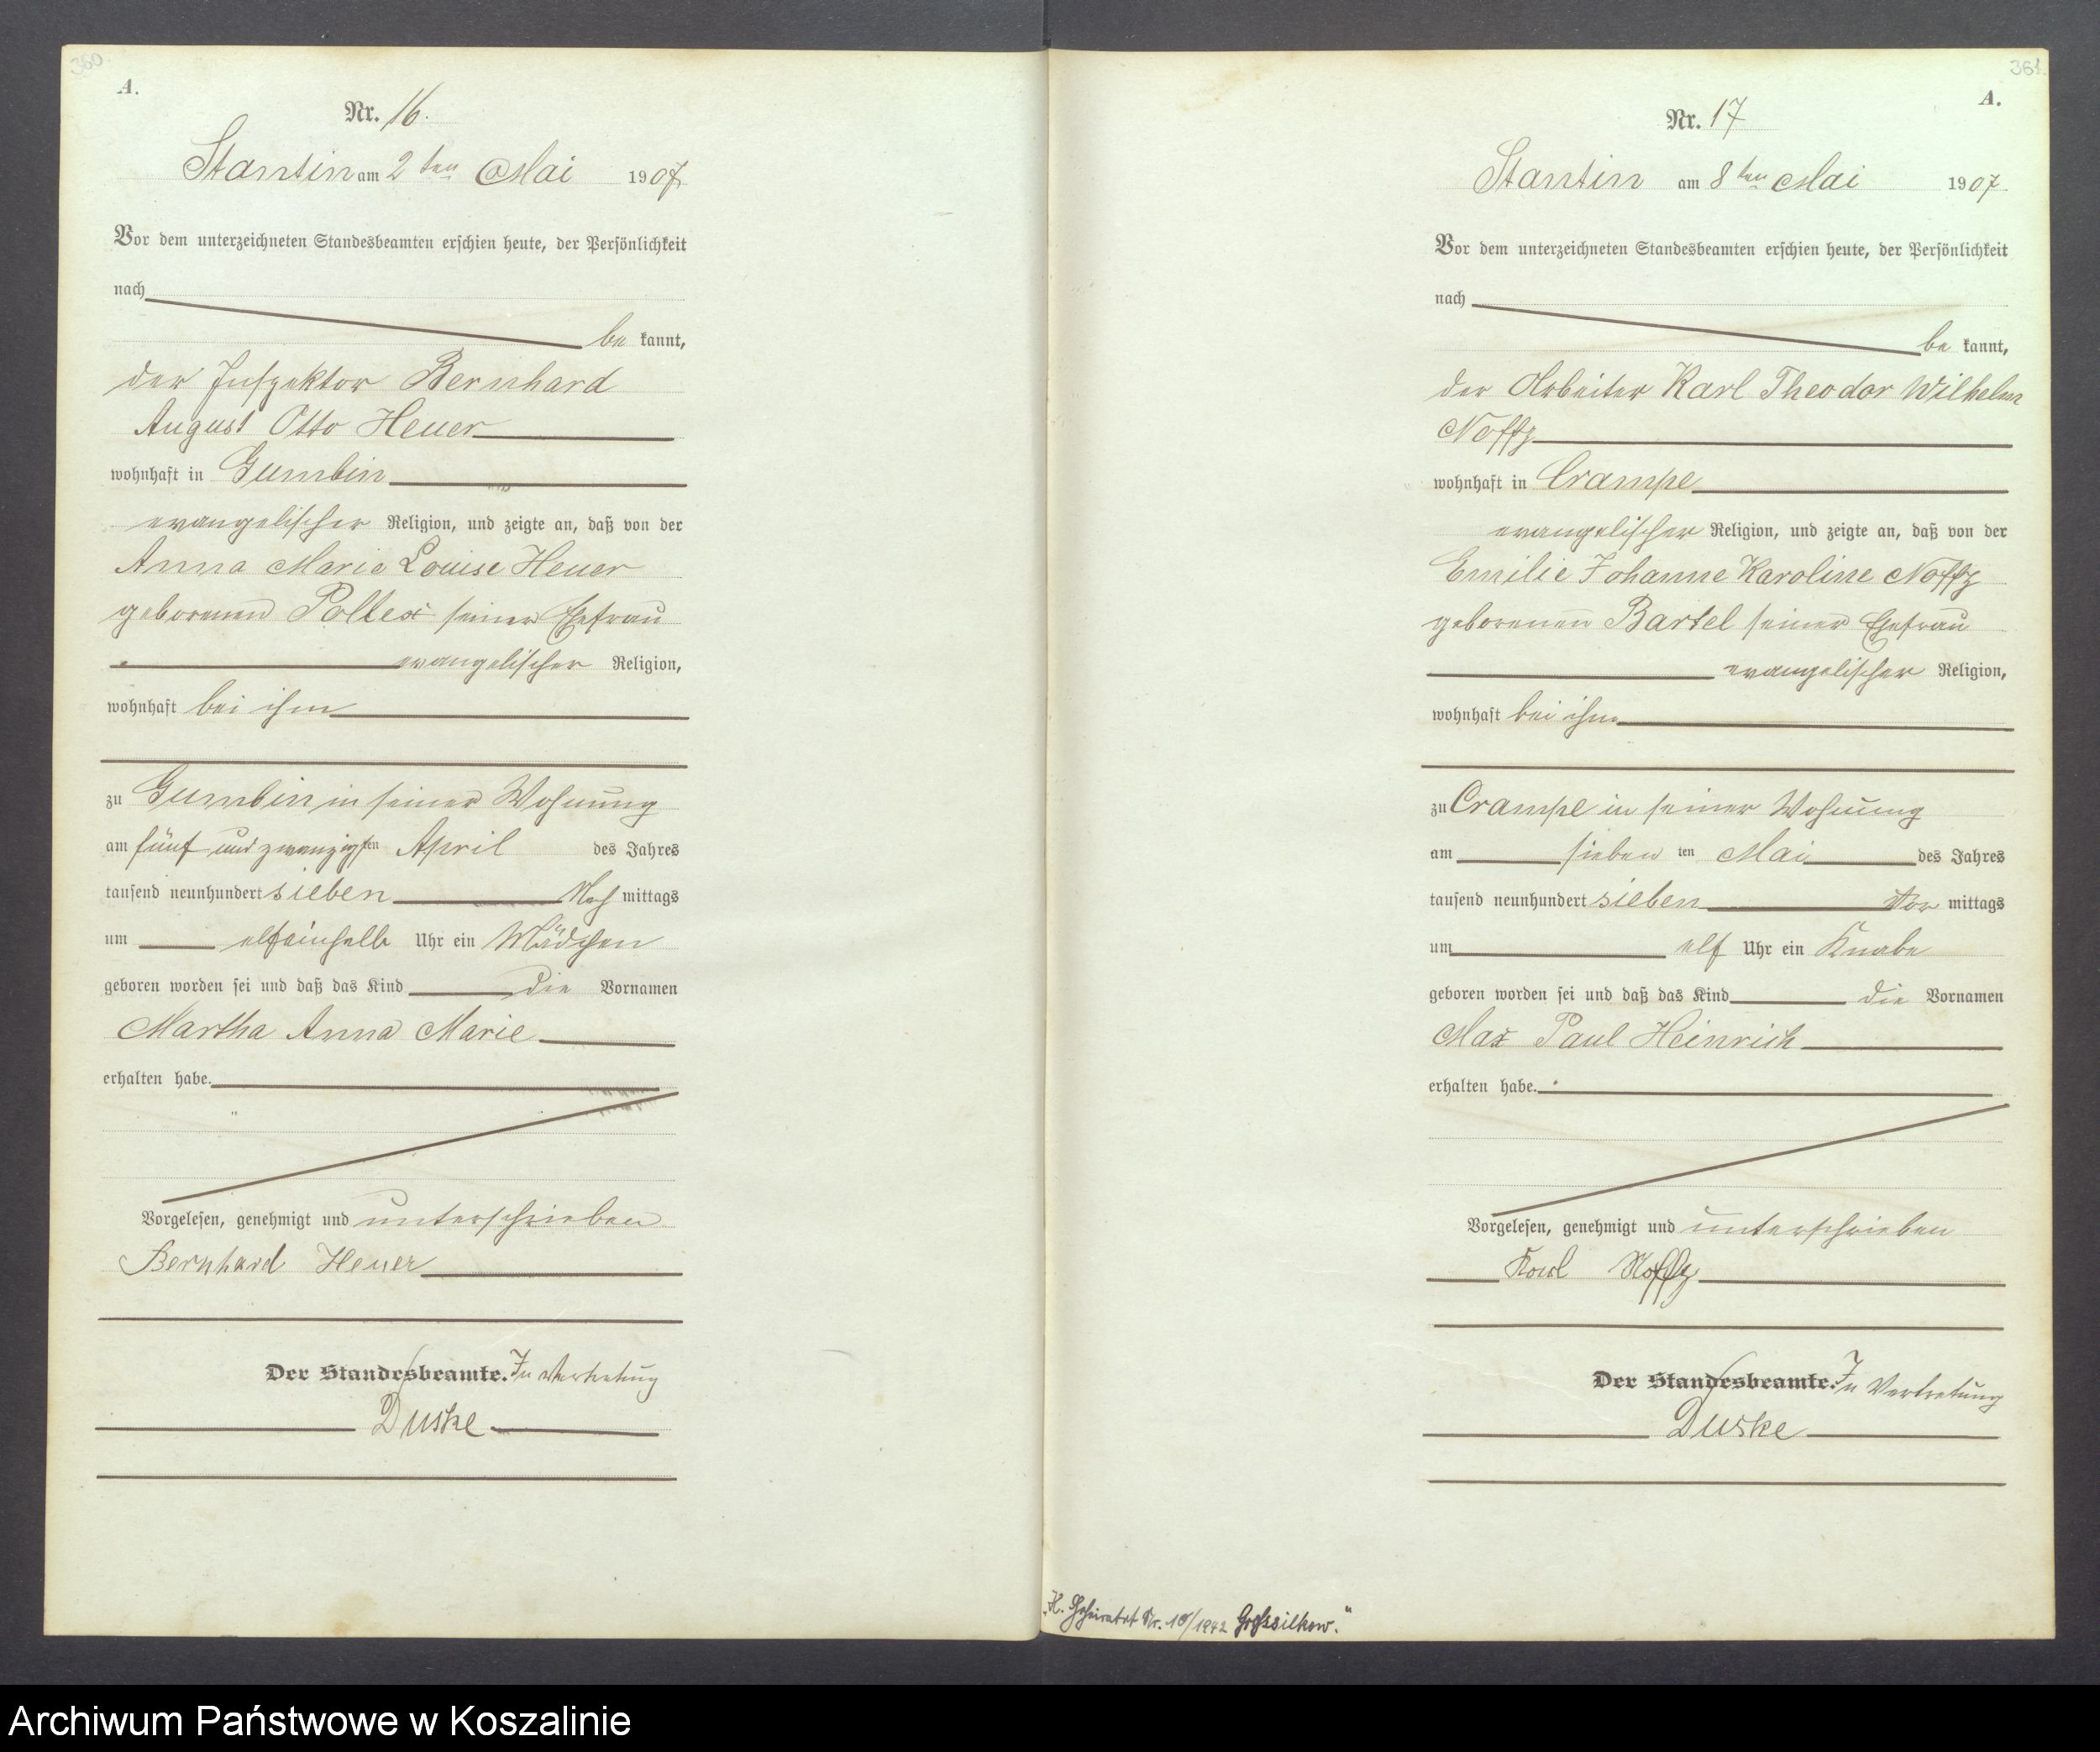 360.
A.
Nr. 16.
Stantin am 2ten Mai 1907.
Vor dem unterzeichneten Standesbeamten erschien heute, der Persönlichkeit
nach
be kannt,
der Inspektor Bernhard
August Otto Heuer
wohnhaft in Gumbin
evangelischer Religion, und zeigte an, daß von der
Anna Marie Louise Heuer
geborenen Pollex seiner Ehefrau
evangelischer Religion,
wohnhaft bei ihm
zu Gumbin in seiner Wohnung
am fünf und zwanzigsten April des Jahres
tausend neunhundert sieben Nachmittags
um elfeinhalb Uhr ein Mädchen
geboren worden sei und daß das Kind die Vornamen
Martha Anna Marie
erhalten habe.
Vorgelesen, genehmigt und unterschrieben
Bernhard Heuer
Der Standesbeamte. In Vertretung
Duske
361.
A.
Nr. 17
Stantin am 8ten Mai 1907
Vor dem unterzeichneten Standesbeamten erschien heute, der Persönlichkeit
nach
be kannt,
der Arbeiter Karl Theodor Wilhelm
Noffz
wohnhaft in Crampe
evangelischer Religion, und zeigte an, daß von der
Emilie Johanne Karoline Noffz
geborenen Bartel seiner Ehefrau
evangelischer Religion,
wohnhaft bei ihm
zu Crampe in seiner Wohnung
am sieben ten Mai des Jahres
tausend neunhundert sieben Vor mittags
um elf Uhr ein Knabe
geboren worden sei und daß das Kind die Vornamen
Max Paul Heinrich
erhalten habe.
Vorgelesen, genehmigt und unterschrieben
Karl Noffz
Der Standesbeamte. In Vertretung
Duske
Geheiratet Nr. 10/1942 Grosssilkow."
Archiwum Państwowe w Koszalinie